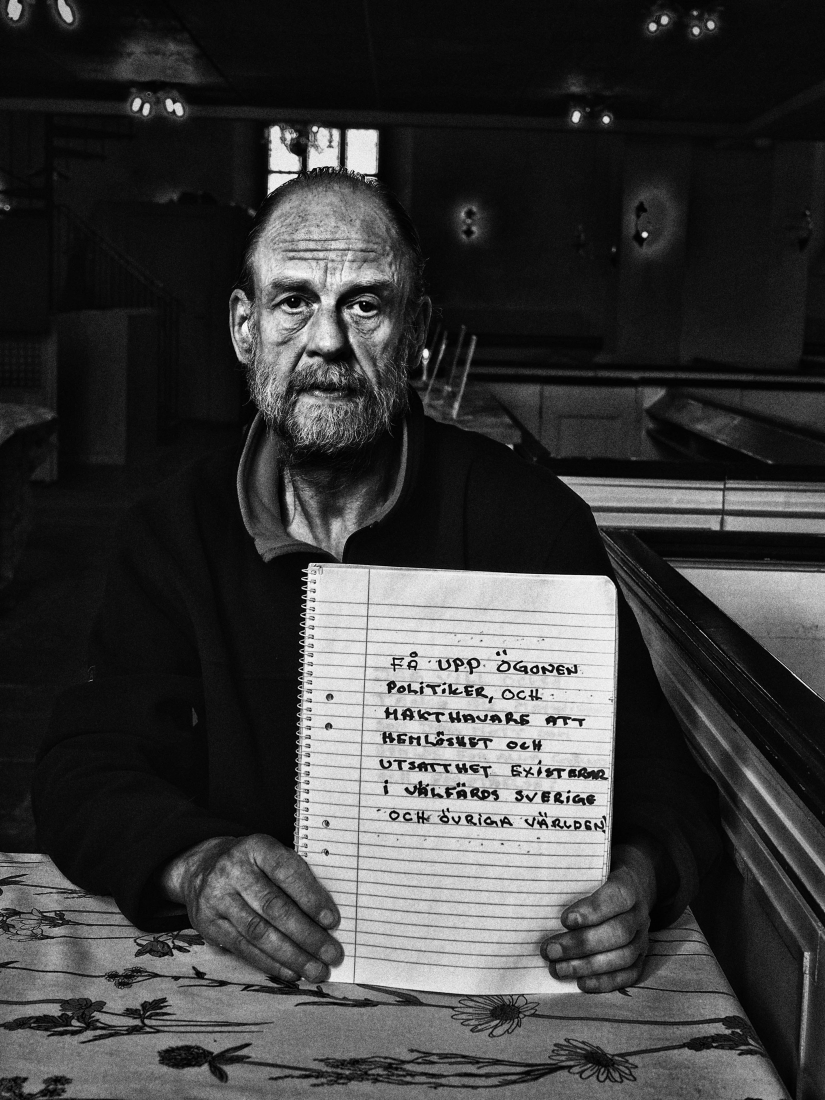 FÅ UPP ÖGONEN
POLITIKER, OCH
MAKTHAVARE ATT
HEMLÖSHET OCH
UTSATTHET EXISTERAR
I VÄLFÄRDS SVERIGE
OCH ÖVRIGA VÄRLDEN!